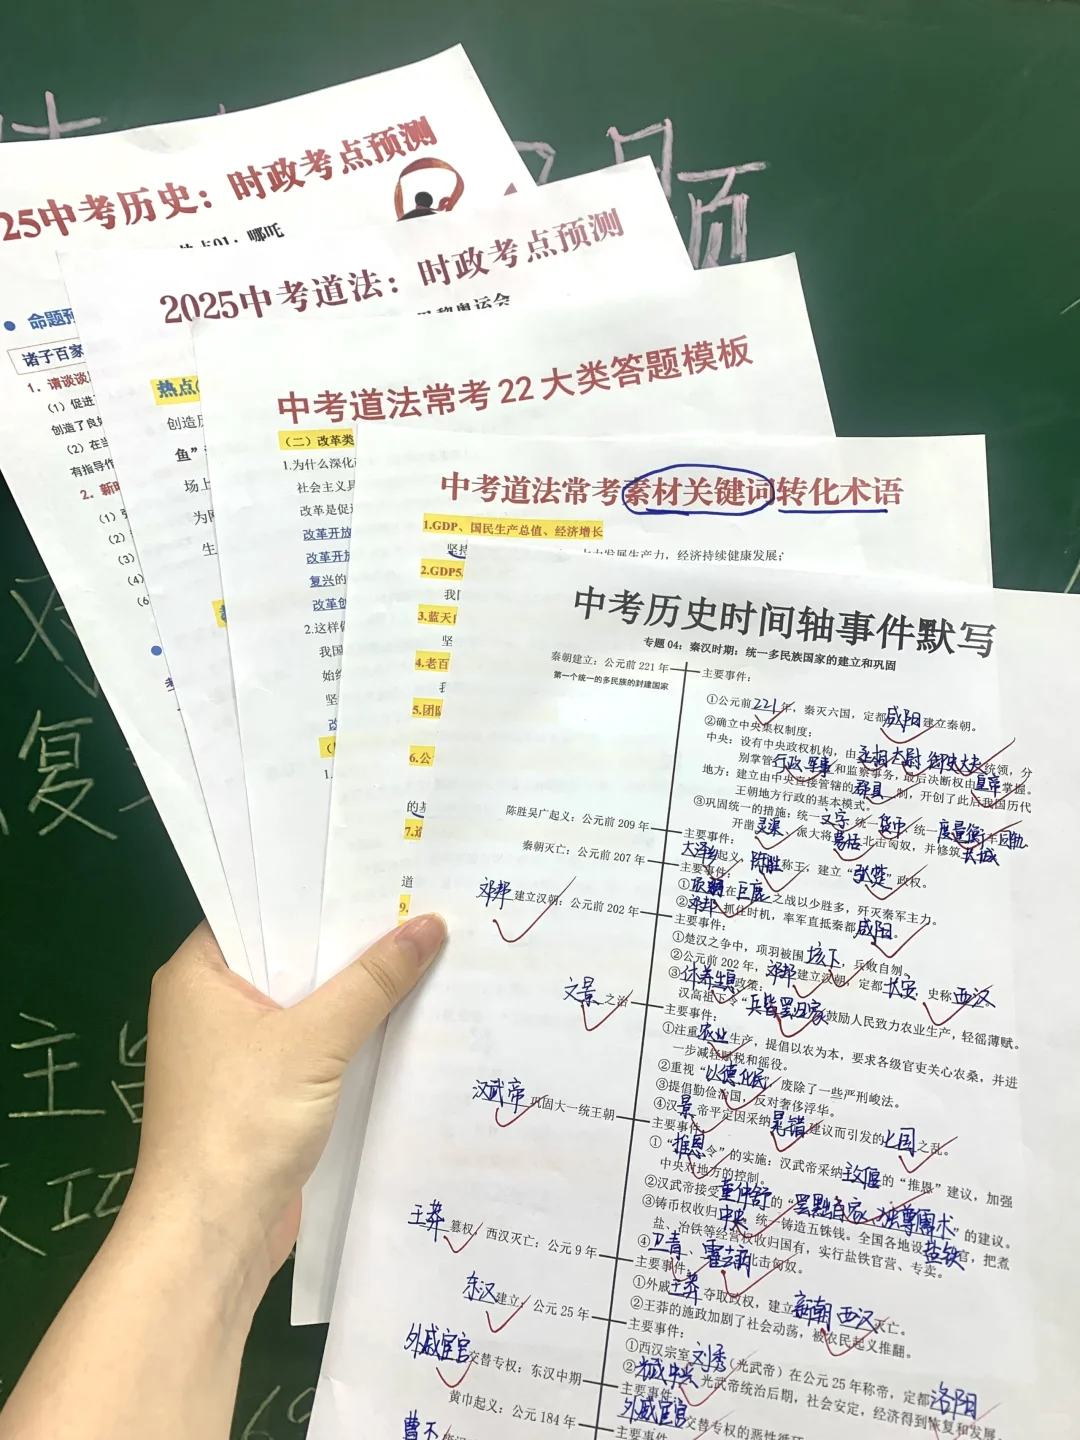 25中考历史：时政考点预测
哪吒
命题预
诸子百家
1. 请谈谈
（1）促进
创造了良好
（2）在当
有指导作
2. 新时
（1）
（2）
（3）
（4）
（6
2025中考道法：时政考点预测
巴黎奥运会
热点
创造历
鱼”
场上
为
生
中考道法常考22大类答题模板
（二）改革类
1.为什么深化
社会主义
改革是
改革开放
改革开放
复兴的
改革创
2.这样做
我国
始终
坚
改
1.
中考道法常考素材关键词转化术语
1.GDP、国民生产总值、经济增长
坚持 大力发展生产力，经济持续健康发展；
2.GDP5
我国
3.蓝天
坚
4.老百
我
5.团队
6.公
的基
7.
道
9.
中考历史时间轴事件默写
专题 04：秦汉时期：统一多民族国家的建立和巩固
秦朝建立：公元前 221 年
第一个统一的多民族的封建国家
主要事件：
①公元前221年，秦灭六国，定都咸阳建立秦朝。
②确立中央集权制度：
中央：设有中央政权机构，由丞相 太尉 御史大夫统领，分
别掌管行政 军事和监察事务，最后决断权由皇帝掌握。
地方：建立由中央直接管辖的郡县制，开创了此后我国历代
王朝地方行政的基本模式。
③巩固统一的措施：统一文字，统一货币，统一度量衡，车同轨
开凿灵渠，派大将蒙恬北击匈奴，并修筑长城
陈胜吴广起义：公元前 209 年
主要事件：
大泽乡起义，陈胜称王，建立“张楚”政权。
秦朝灭亡：公元前 207 年
主要事件：
①项羽在巨鹿之战以少胜多，歼灭秦军主力。
②邓邦抓住时机，率军直抵秦都咸阳。
邓邦建立汉朝：公元前 202 年
主要事件：
①楚汉之争中，项羽被围垓下，兵败自刎。
②公元前 202 年，邓邦建立汉朝，定都长安，史称西汉
③休养生息政策：
汉高祖下令“兵皆罢归家 鼓励人民致力农业生产，轻徭薄赋。
文景之治
主要事件：
①注重农业生产，提倡以农为本，要求各级官吏关心农桑，并进
一步减轻赋税和徭役。
②重视“以德化民”，废除了一些严刑峻法。
③提倡勤俭治国，反对奢侈浮华。
④汉景帝平定因采纳晁错建议而引发的七国之乱。
汉武帝巩固大一统王朝
主要事件：
①“推恩令”的实施：汉武帝采纳主父偃的“推恩”建议，加强
中央对地方的控制。
②汉武帝接受董仲舒的“罢黜百家，独尊儒术”的建议。
③铸币权收归中央，统一铸造五铢钱。全国各地设盐铁官，把煮
盐、冶铁等经营权收归国有，实行盐铁官营、专卖。
④卫青、霍去病北击匈奴。
王莽篡权，西汉灭亡：公元 9 年
主要事件：
①外戚王莽夺取政权，建立新朝 西汉灭亡。
②王莽的施政加剧了社会动荡，被农民起义推翻。
东汉建立：公元 25 年
主要事件：
①西汉宗室刘秀（光武帝）在公元 25 年称帝，定都洛阳
②光武中兴 光武帝统治后期，社会安定，经济得到恢复和发展。
外戚宦官交替专权：东汉中期
主要事件：
外戚宦官交替专权的恶性循环
黄巾起义：公元 184 年
主要事件：
曹丕
复
主旨